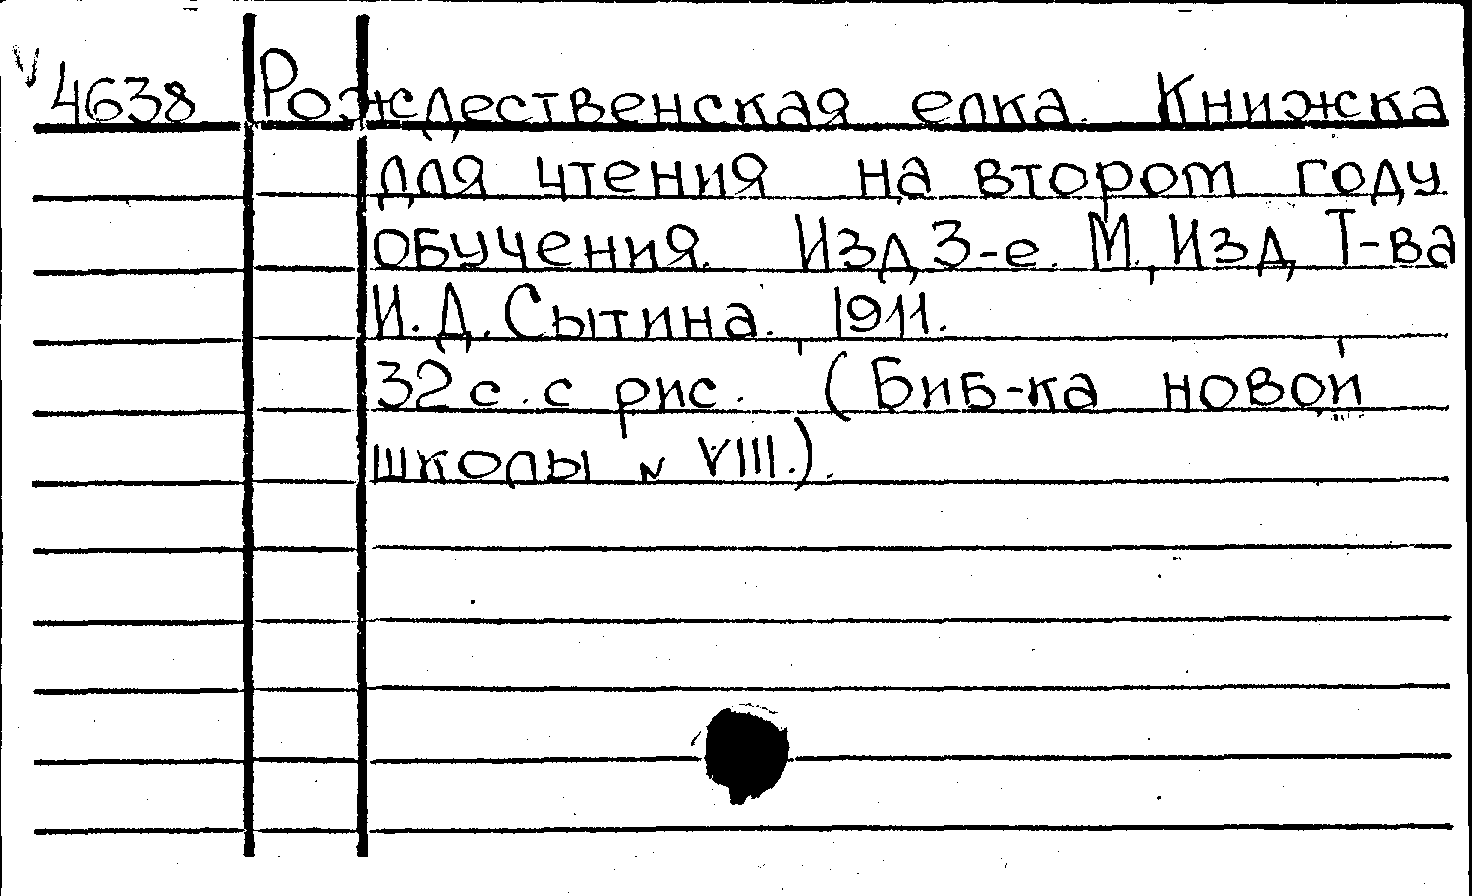 V 4638 Рождественская елка. Книжка
для чтения на втором году
обучения. Изд 3-е. М., Изд, Т-ва
И. Д. Сытина. 1911.
32 с. с рис. (Биб-ка новой
школы № VIII.).